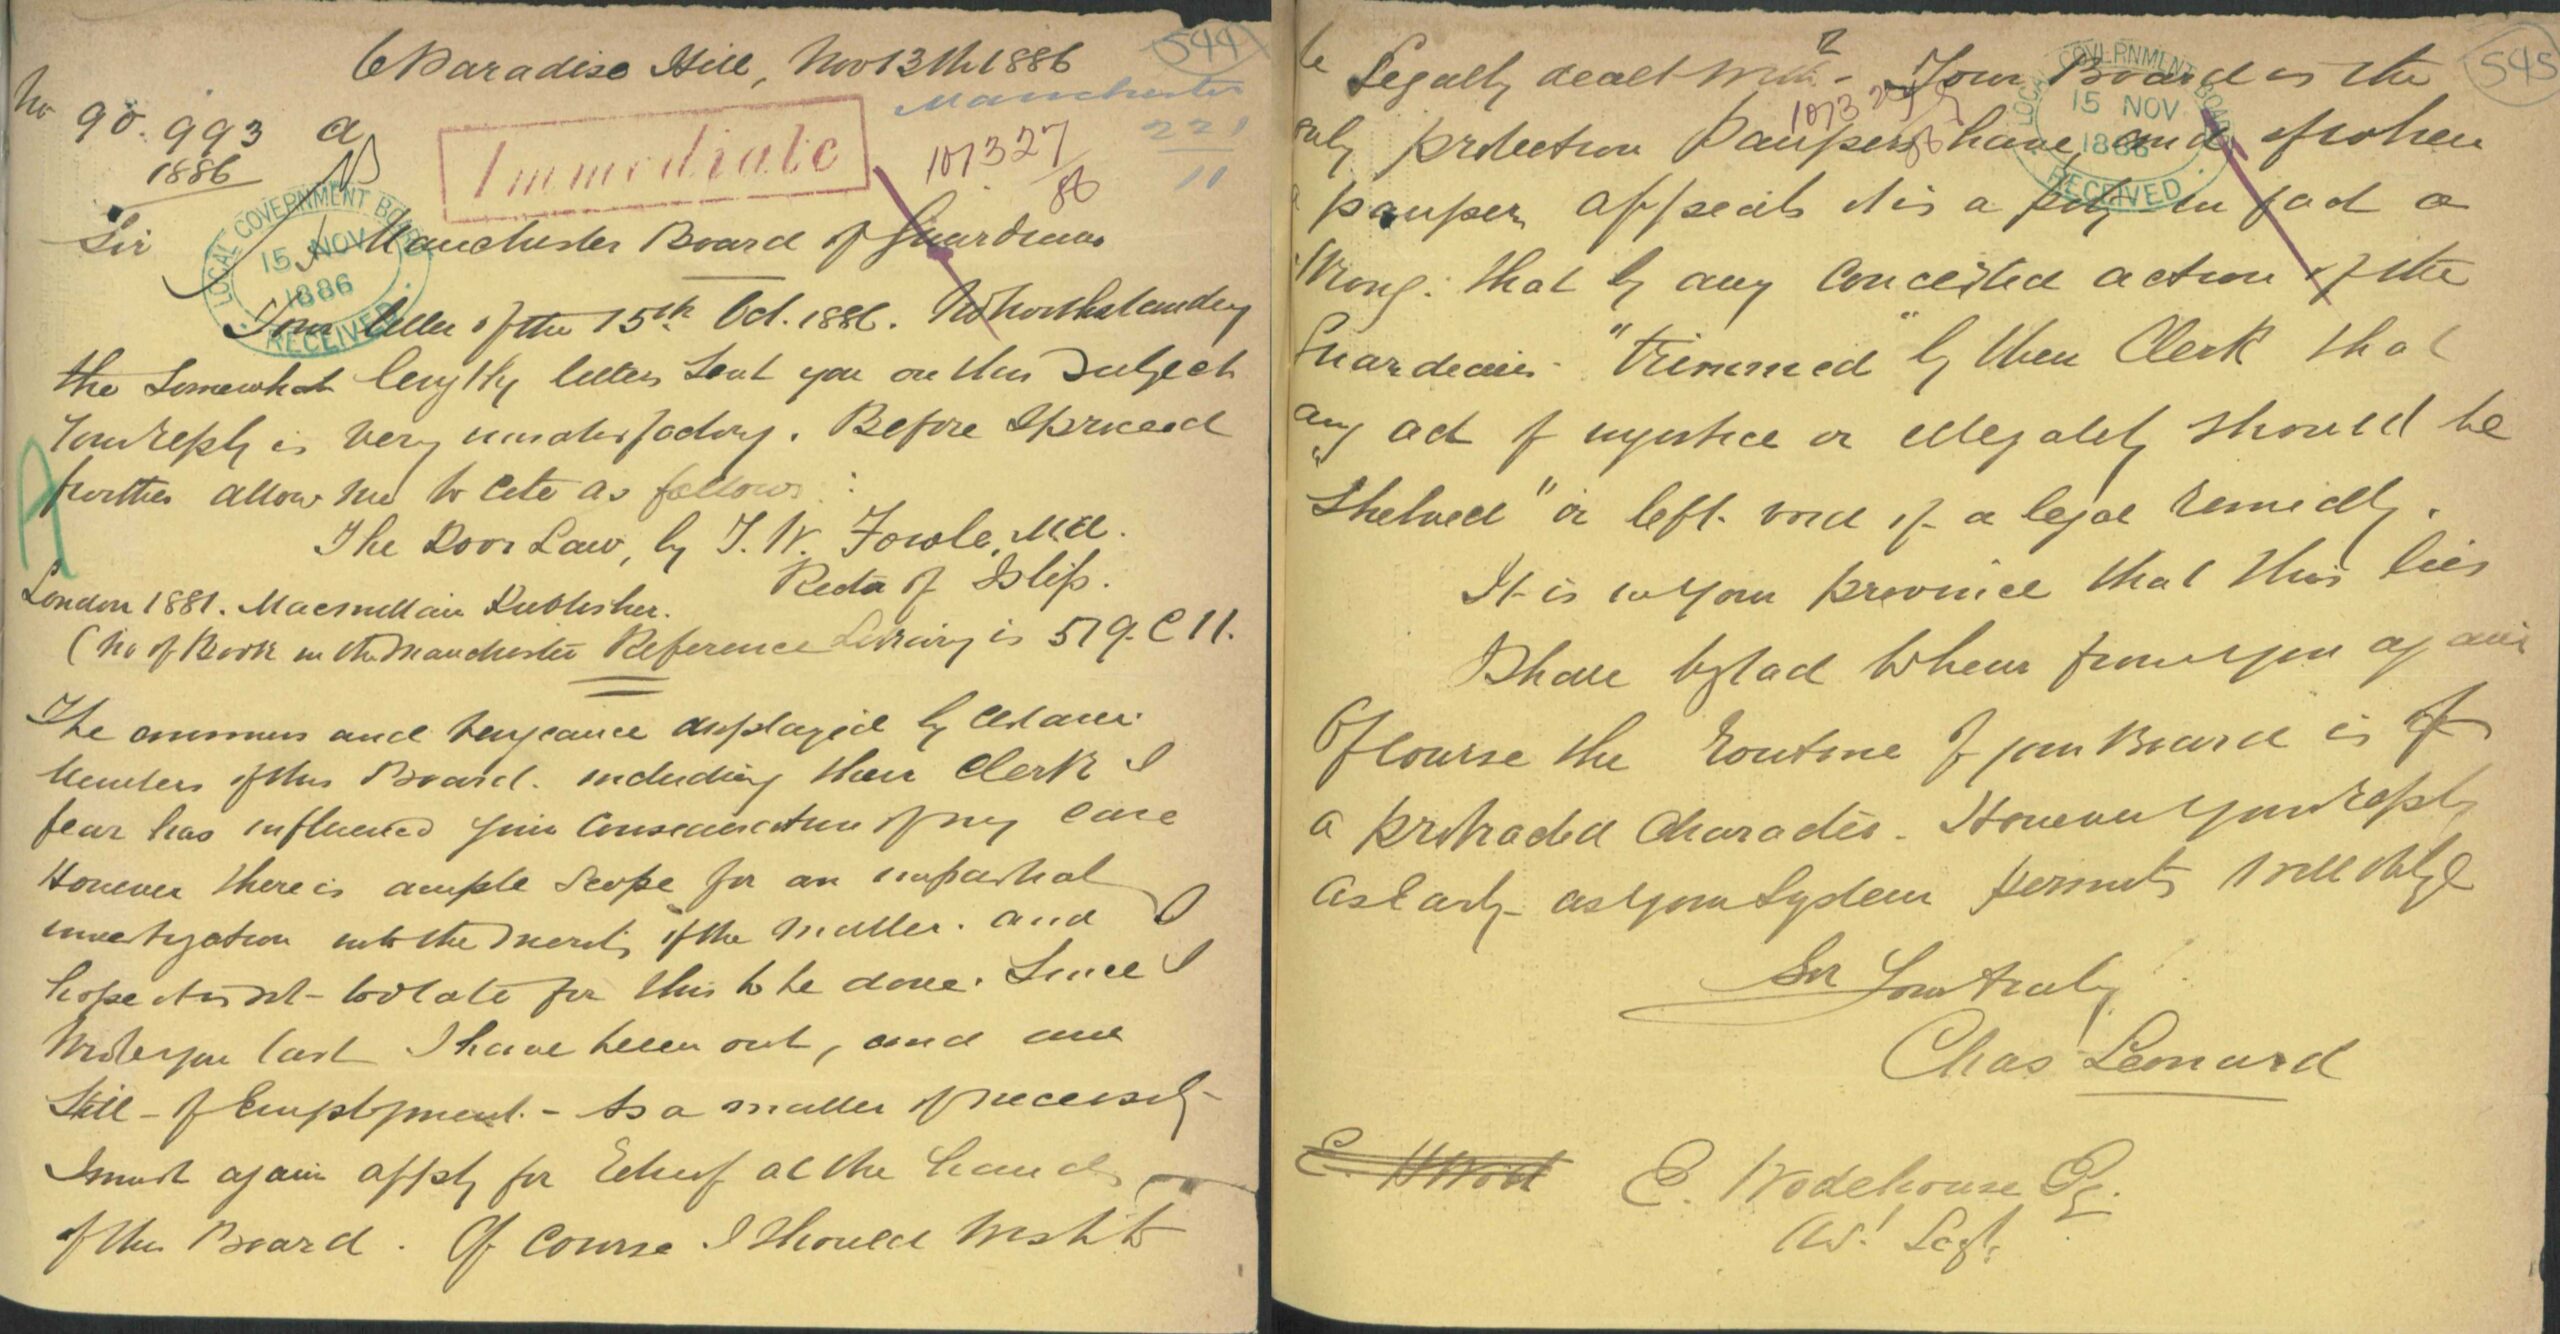 544
6 Paradise Hill, Nov 13th 1886
Manchester
221
11
No 90.993 a
1886
Immediate
107327
86
LOCAL GOVERNMENT BOARD
15 NOV
1886
RECEIVED
Sir Manchester Board of Guardians
Your letter of the 15th Oct. 1886. Notwithstanding
the Somewhat lengthy letters Sent you on this Subject
Your reply is very unsatisfactory. Before I proceed
further allow me to cite as follows:
The Poor Law, by T. W. Fowle, M.A.
Rector of Islip.
London 1881. Macmillan Publisher.
(No of Book in the Manchester Reference Library is 519. C 11.
The animus and vengeance displayed by certain
Members of this Board. including their Clerk I
fear has influenced your Consideration of my case
However there is ample Scope for an impartial
investigation into the merits of the Matter. and I
hope it is not too late for this to be done. Since I
Wrote you last I have been out, and am
Still - of Employment. - As a matter of necessity
I must again apply for Relief at the hands
of this Board. Of course I Should wish to
545
be Legally dealt with - Your Board is the
LOCAL GOVERNMENT BOARD
15 NOV
1886
RECEIVED
1073
86
only protection Paupers have, and if when
a pauper appeals it is a pity in fact a
Wrong: that by any Concerted action of the
Guardians - "trimmed" by their Clerk that
any act of injustice or illegality should be
"Shelved" or left void of a legal remedy.
It is in your province that this lies
I shall be glad to hear from you again
Of course the routine of your Board is of
a protracted Character. However your reply
as Early as your System permits will oblige
Sir Yours truly
Chas Leonard
E. H Wood
E. Wodehouse Esq.
Ast Secty.